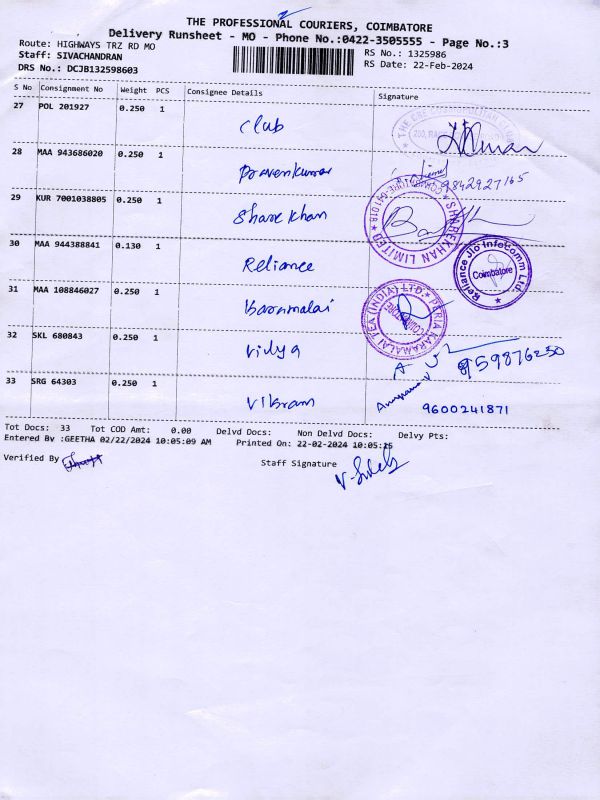 THE PROFESSIONAL COURIERS, COIMBATORE
Delivery Runsheet - MO - Phone No.:0422-3505555 - Page No.:3
Route: HIGHWAYS TRZ RD MO
RS No.: 1325986
Staff: SIVACHANDRAN
RS Date: 22-Feb-2024
DRS No.: DCJB132598603
S No Consignment No Weight PCS Consignee Details Signature
27 POL 201927 0.250 1 Club
28 MAA 943686020 0.250 1 Praveenkumar 9842927165
29 KUR 7001038805 0.250 1 Sharekhan
SHAREKHAN LIMITED
30 MAA 944388841 0.130 1 Reliance
Reliance Jio Infocomm Ltd.
Coimbatore
31 MAA 108846027 0.250 1 Karamalai
PERIA KARAMALAI TEA (INDIA) LTD.
32 SKL 680843 0.250 1 Vidya
33 SRG 64303 0.250 1 Vikram 9600241871
Tot Docs: 33 Tot COD Amt: 0.00 Delvd Docs: Non Delvd Docs: Delvy Pts:
Entered By :GEETHA 02/22/2024 10:05:09 AM Printed On: 22-02-2024 10:05:15
Verified By
Staff Signature